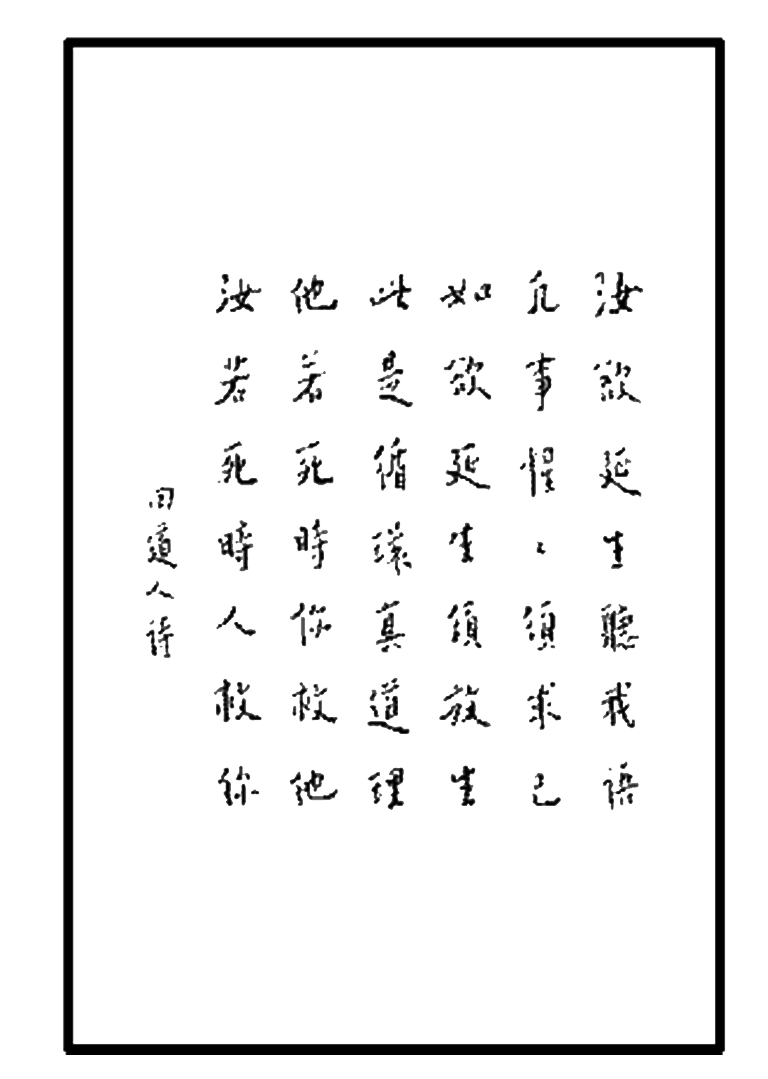 汝欲延生聽我語
凡事惺々須求己
如欲延生須放生
此是循環真道理
他若死時你救他
汝若死時人救你
回道人詩